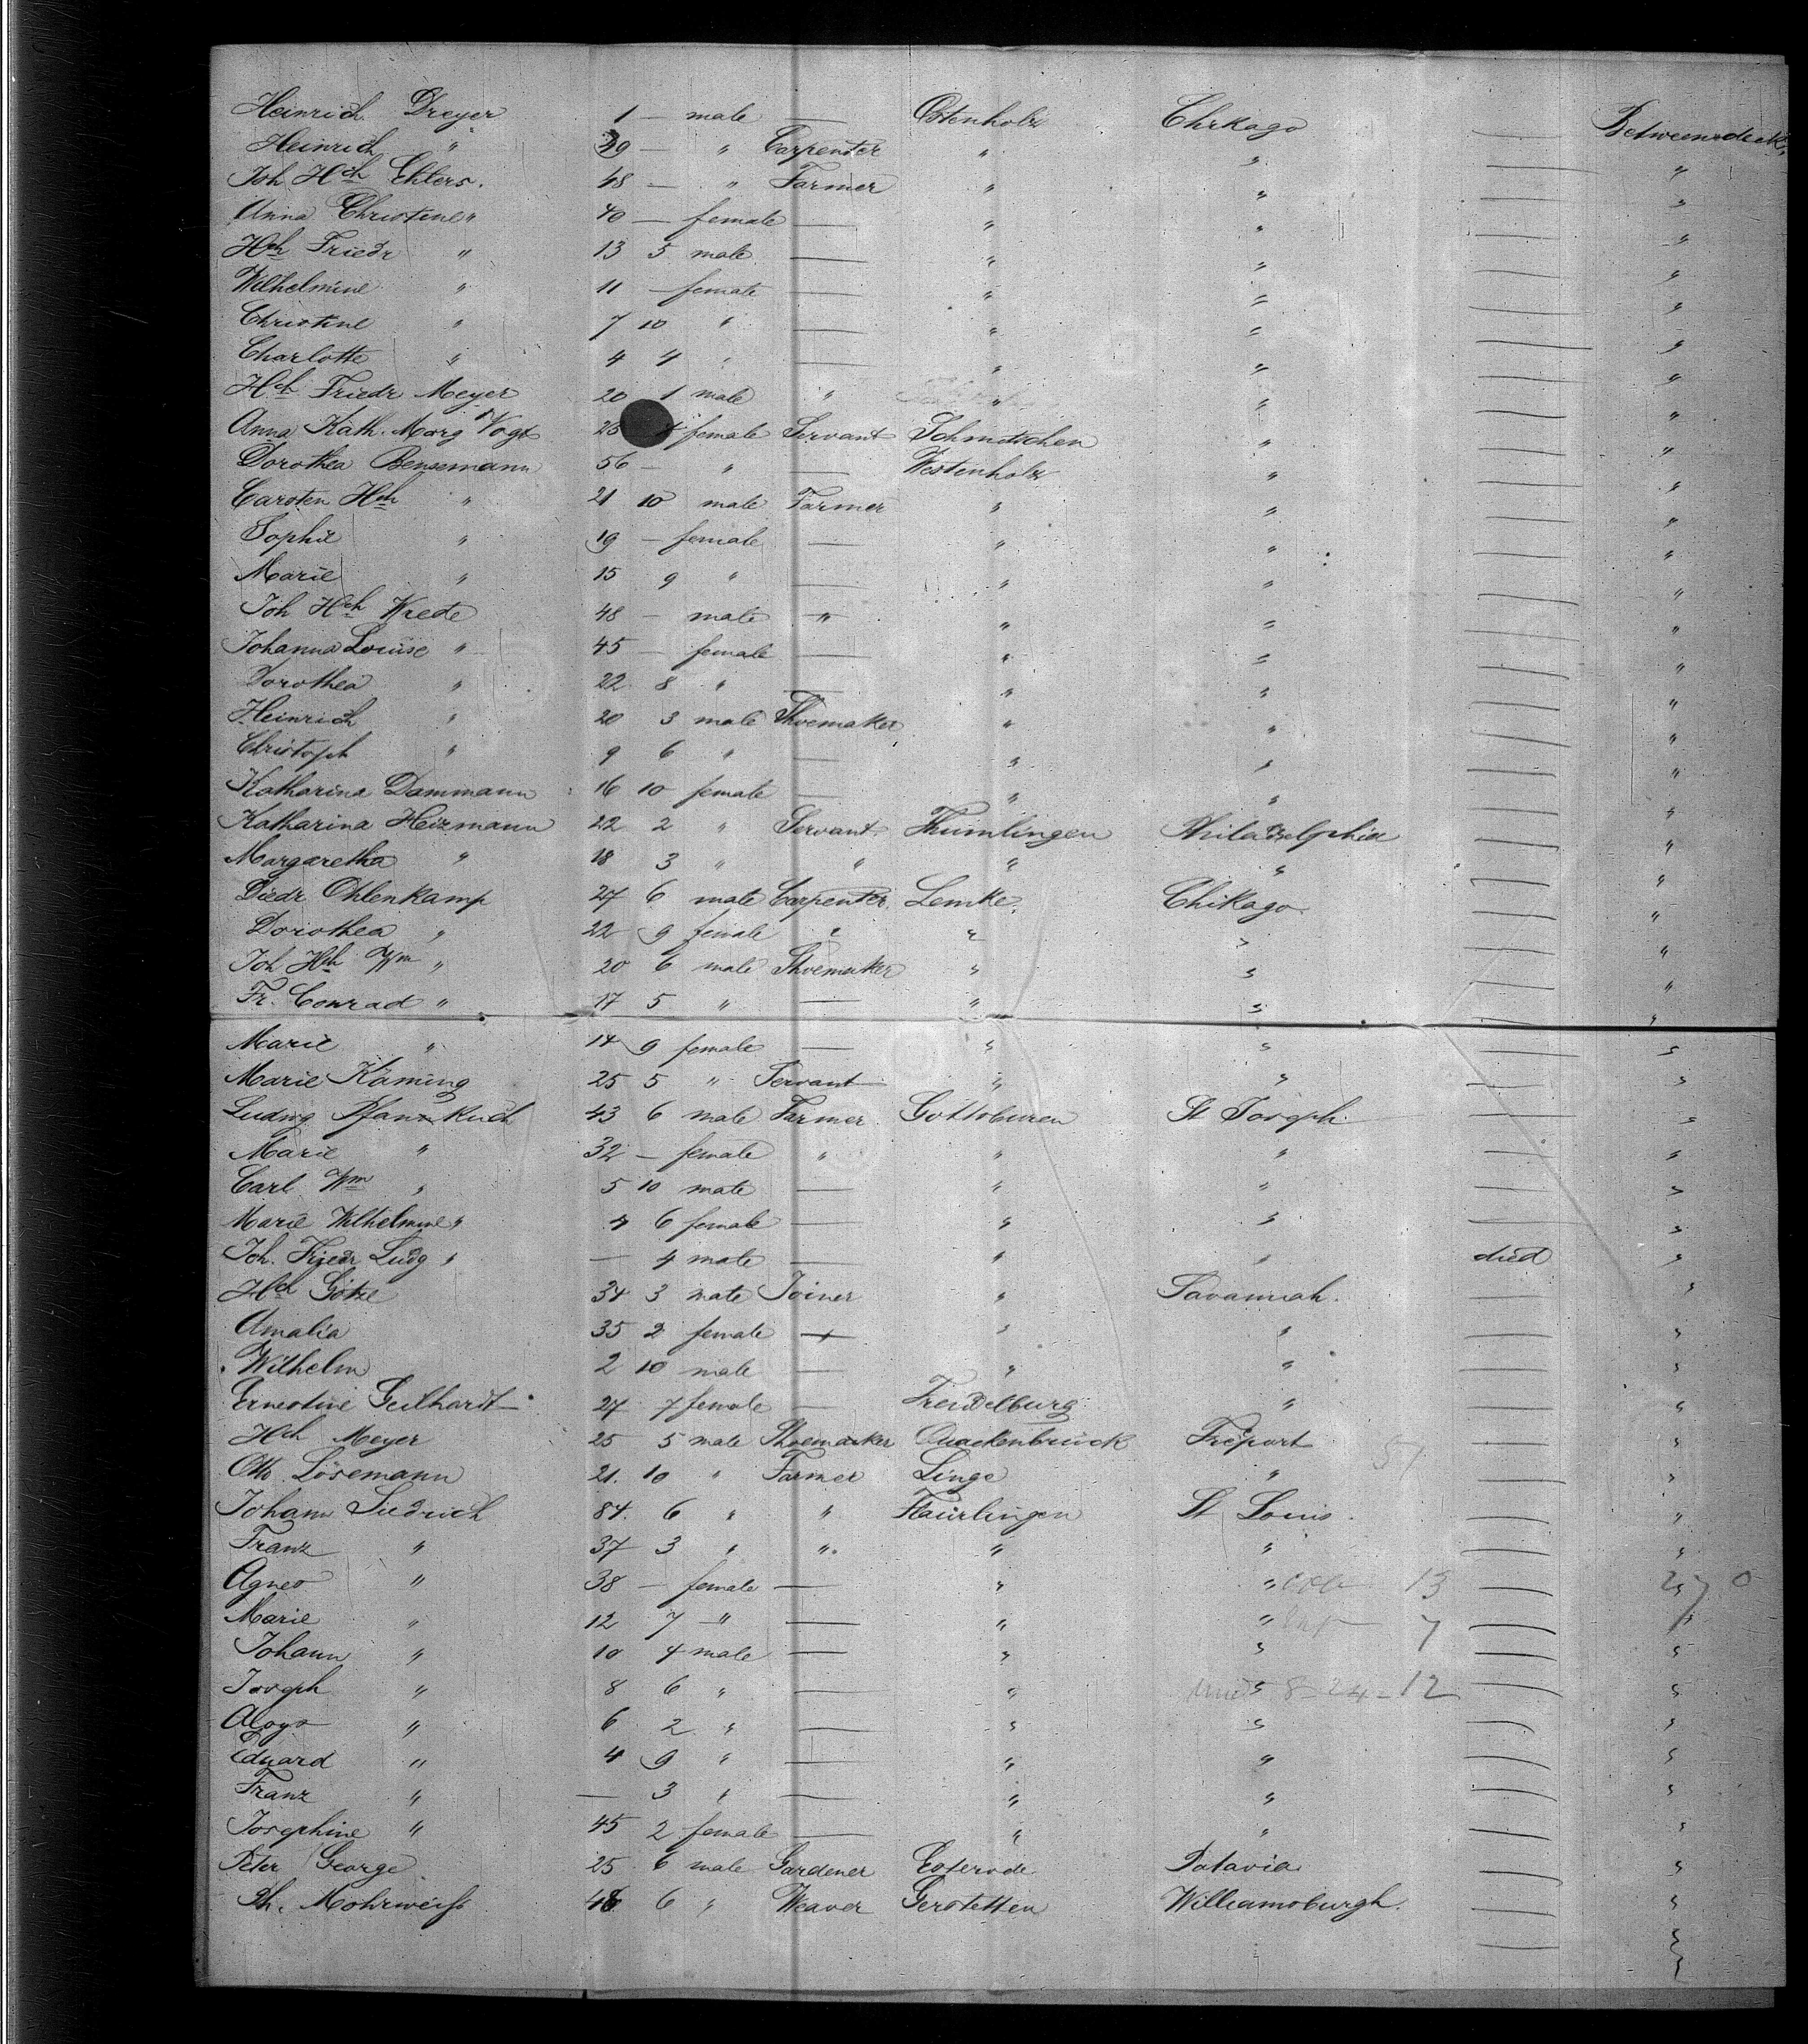 Heinrich Dreyer 1 — male — Ostenholz Chikago — Betweendeck
Heinrich " 29 — " Carpenter " " — "
Joh Hch Ehlers. 48 — " Farmer " " — "
Anna Christine " 40 — female — " " — "
Hch Friedr " 13 5 male — " " — "
Wilhelmine " 11 — female — " " — "
Christine " 7 10 " — " " — "
Charlotte " 4 4 " — " " — "
Hch Friedr Meyer 20 1 male " " " — "
Anna Kath. Marg Vogt 25 4 female Servant " — "
Dorothea Bensemann 56 — " — Westenholz " — "
Carsten Hch " 21 10 male Farmer " " — "
Sophie " 19 — female — " " — "
Marie " 15 9 " — " " — "
Joh Hch Wrede 48 — male " " " — "
Johanna Louise " 45 — female — " " — "
Dorothea " 22 8 " — " " — "
Heinrich " 20 3 male Shoemaker " " — "
Christoph " 9 6 " — " " — "
Katharina Dammann 16 10 female — " " — "
Katharina Heizmann 22 2 " Servant Thumlingen Philadelphia — "
Margaretha " 18 3 " " " " — "
Diedr Ohlenkamp 27 6 male Carpenter Lemke. Chikago — "
Dorothea " 22 9 female " " " — "
Joh Hch Wm " 20 6 male Shoemaker " " — "
Fr. Conrad " 17 5 " — " " — "
Marie " 14 9 female — " " — "
Marie Käming 25 5 " Servant " " — "
Ludwig Pfannkuch 43 6 male Farmer Gottsburen St Joseph — "
Marie " 32 — female " " " — "
Carl Wm " 5 10 male — " " — "
Marie Wilhelmine " 4 6 female — " " — "
Joh. Friedr Ludg " — 4 male — " " died "
Hch Götze 34 3 male Joiner " Savannah. — "
Amalia 35 2 female — " " — "
Wilhelm 2 10 male — " " — "
Ernestine Geilhardt 27 7 female — Trendelburg " — "
Hch Meyer 25 5 male Shoemaker Quackenbrück Freport 51 — "
Otto Lösemann 21. 10 " Farmer Linge " — "
Johann Diedrich 84. 6 " " Haurlingen St Louis. — "
Franz " 37 3 " " " " — "
Agnes " 38 — female — " " 13 — "
Marie " 12 7 " — " " 7 — "
Johann " 10 4 male — " " — "
Joseph " 8 6 " — " " 8-24-12 — "
Aloys " 6 2 " — " " — "
Eduard " 4 9 " — " " — "
Franz " — 3 " — " " — "
Josephine " 45 2 female — " " — "
Peter George 25 6 male Gardener Esterode Batavia — "
Ph. Mohrweiss 48 6 " Weaver Gerstetten Williamsburgh. — "